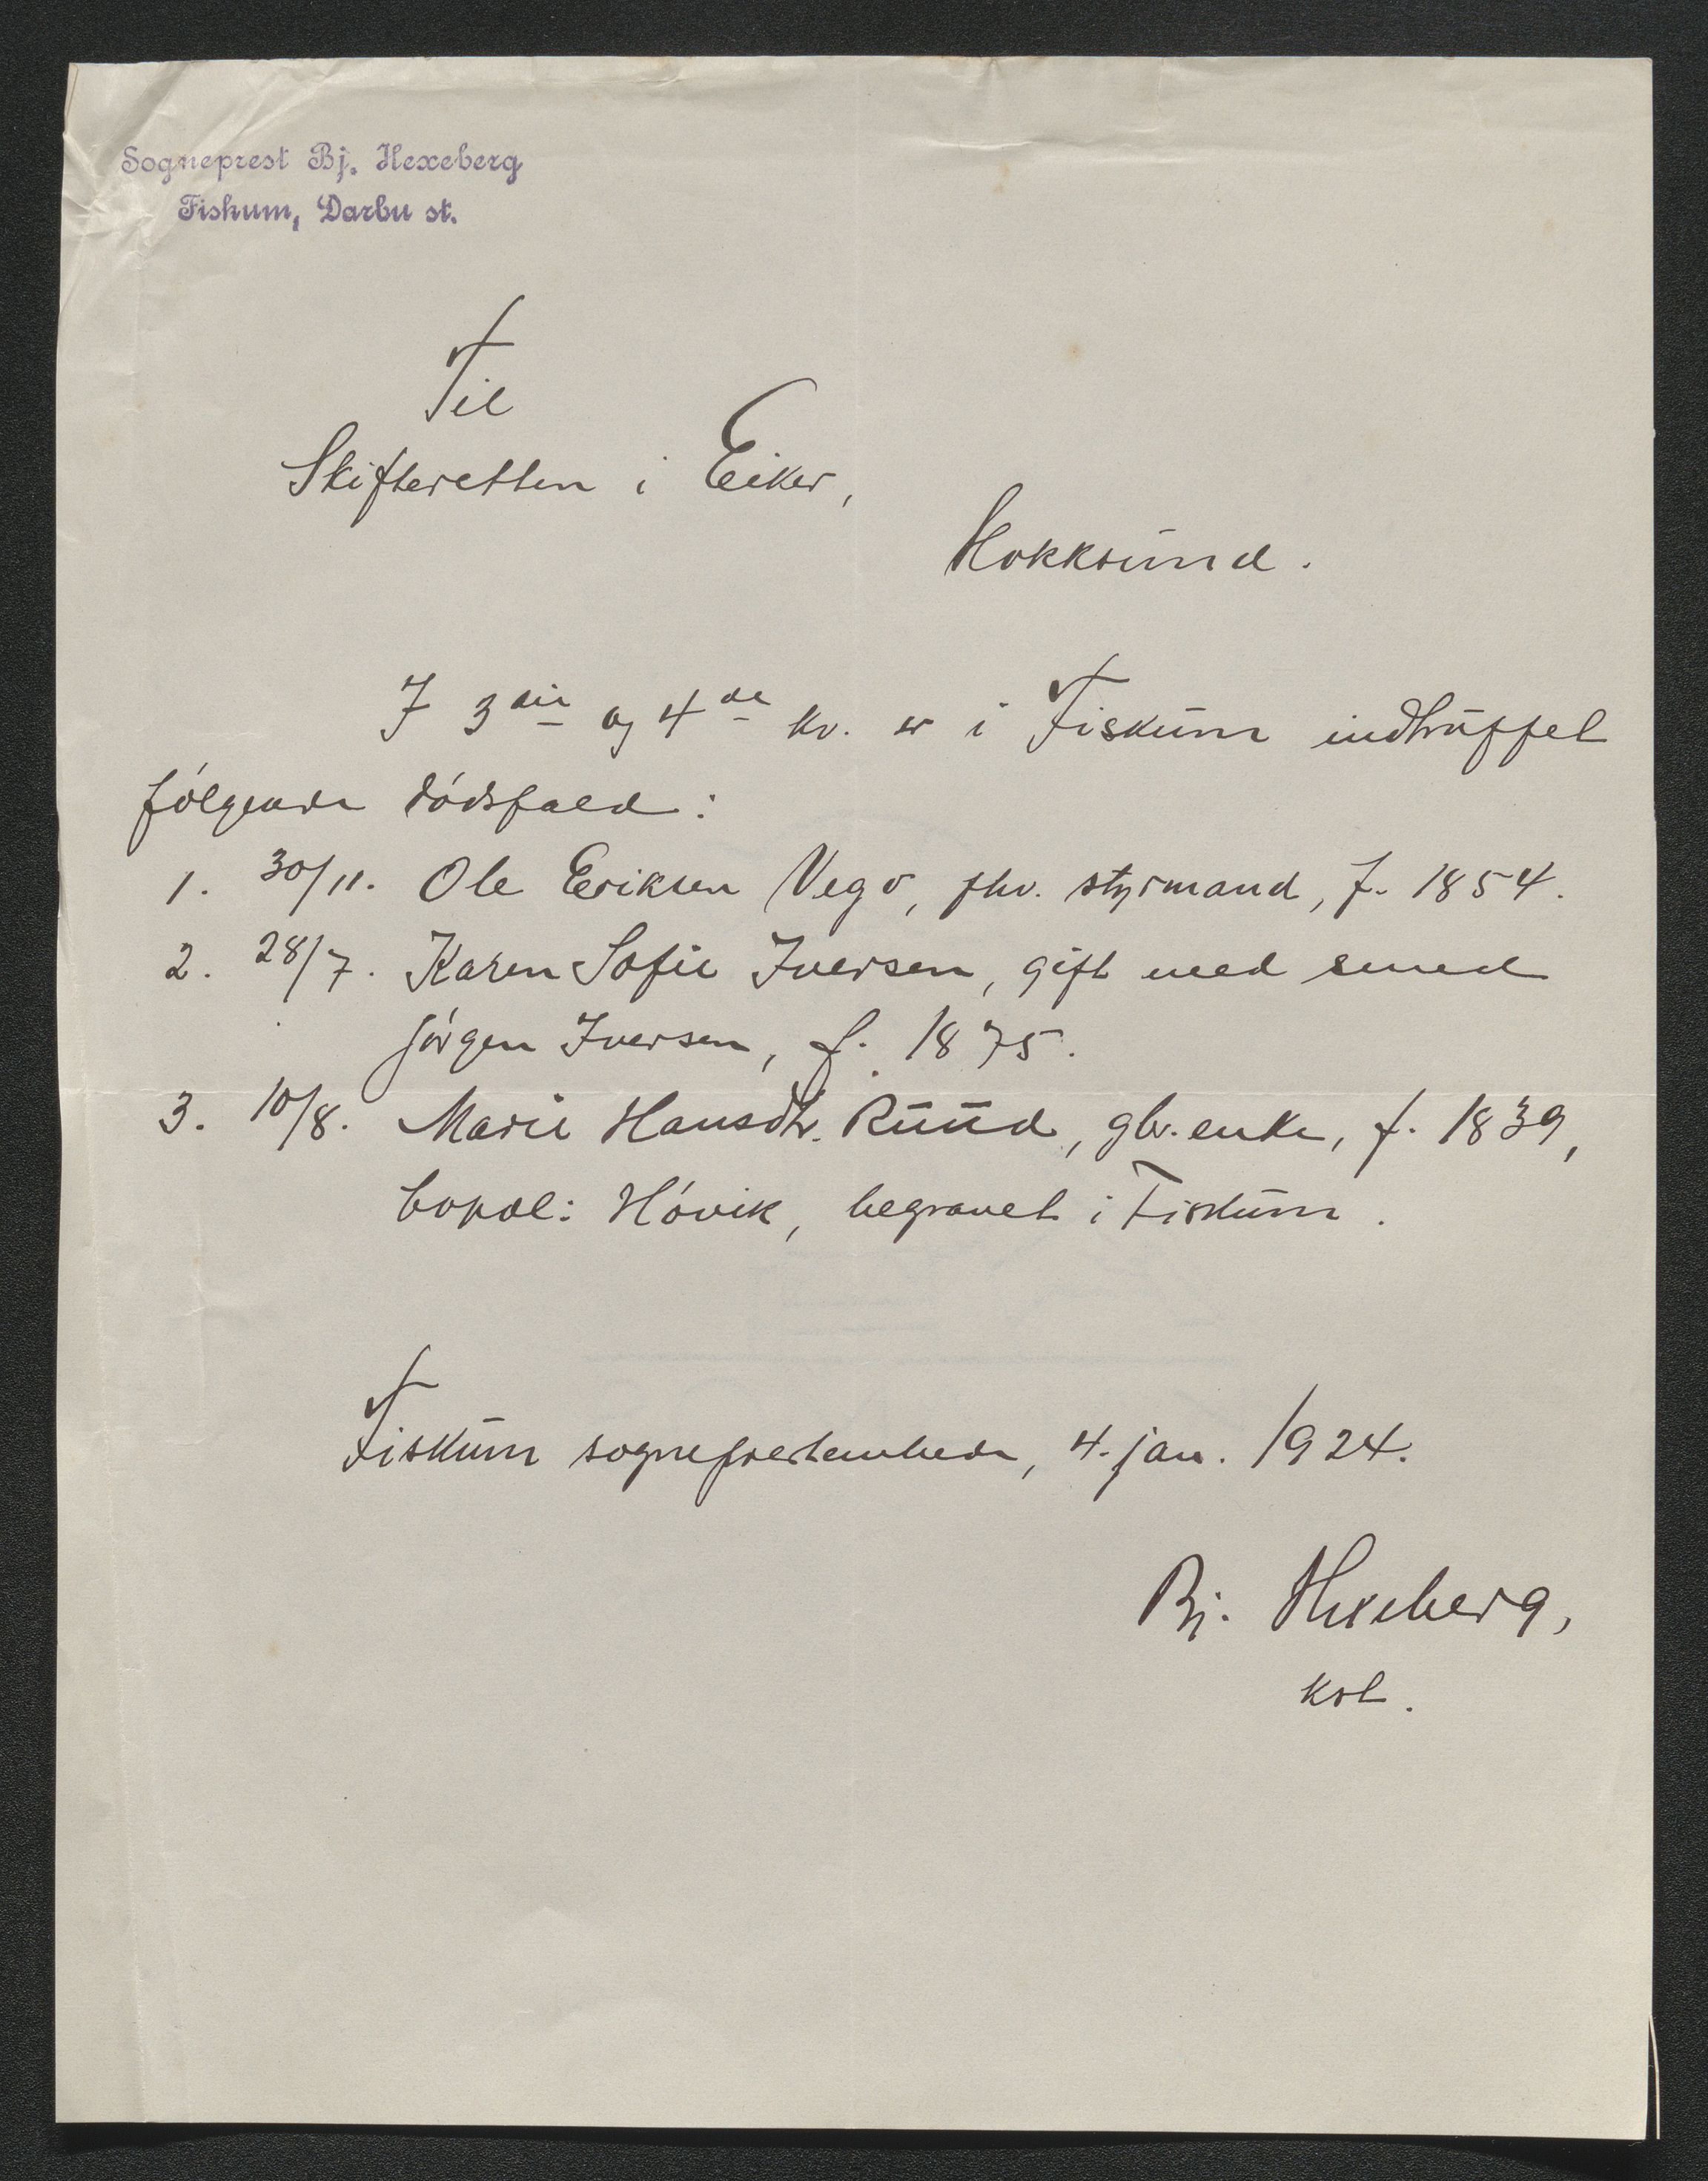 Sogneprest Bj. Hexeberg
Fiskum, Darbu st.
Til
Skifteretten i Eiker,
Hokksund.
I 3die og 4de kv. er i Fiskum indtruffet
følgende dødsfald:
1. 30/11. Ole Eriksen Vego, fhv. styrmand, f. 1854.
2. 28/7. Karen Sofie Iversen, gift med smed
Jørgen Iversen, f. 1875.
3. 10/8. Marie Hansdtr. Ruud, gbr. enke, f. 1839,
bopæl: Høvik, begravet i Fiskum.
Fiskum sogneprestembede, 4. jan. 1924.
Bj. Hexeberg,
kst.